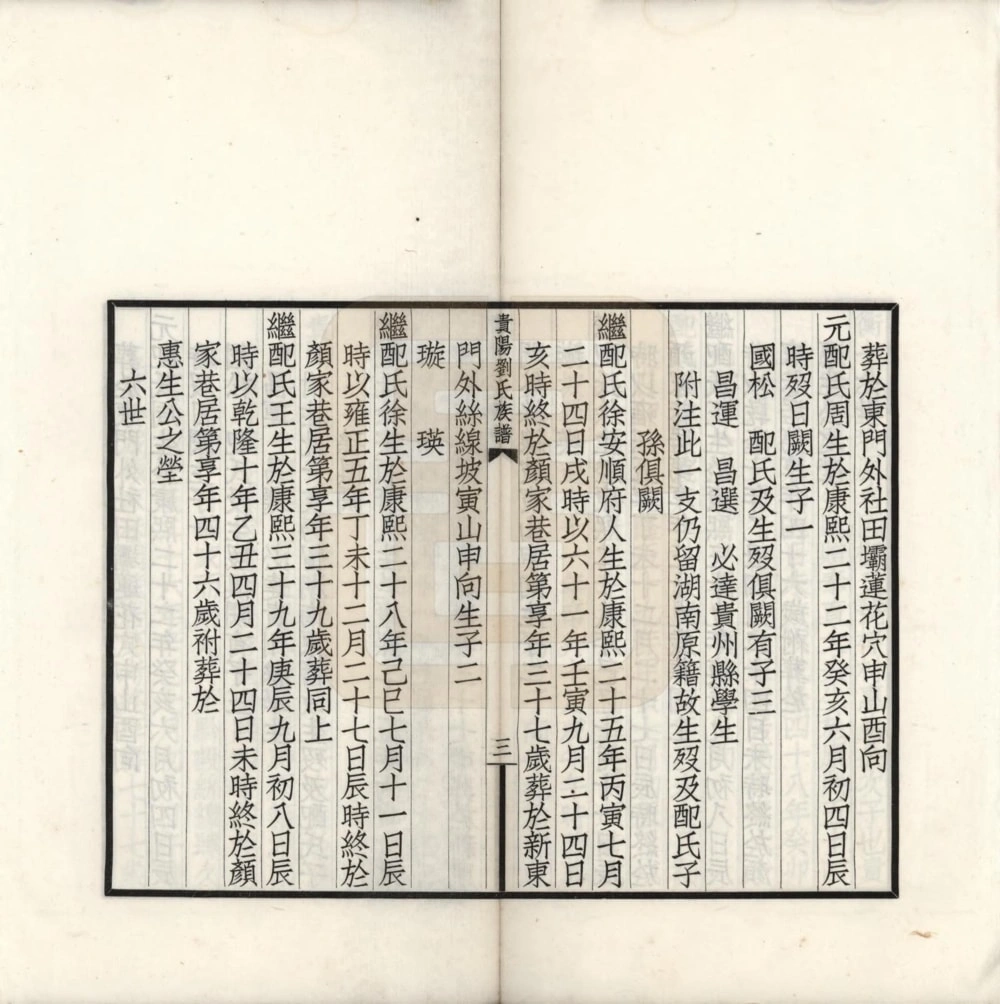 葬於東門外社田壩蓮花穴申山酉向
元配氏周生於康熙二十二年癸亥六月初四日辰
時歿日闕生子一
國松　配氏及生歿俱闕有子三
昌運　昌選　必達貴州縣學生
孫俱闕
附注此一支仍留湖南原籍故生歿及配氏子
繼配氏徐安順府人生於康熙二十五年丙寅七月
二十四日戌時以六十一年壬寅九月二十四日
亥時終於顏家巷居第享年三十七歲葬於新東
貴陽劉氏族譜
三
門外絲線坡寅山申向生子二
璇　瑛
繼配氏徐生於康熙二十八年己巳七月十一日辰
時以雍正五年丁未十二月二十七日辰時終於
顏家巷居第享年三十九歲葬同上
繼配氏王生於康熙三十九年庚辰九月初八日辰
時以乾隆十年乙丑四月二十四日未時終於顏
家巷居第享年四十六歲祔葬於
惠生公之塋
六世